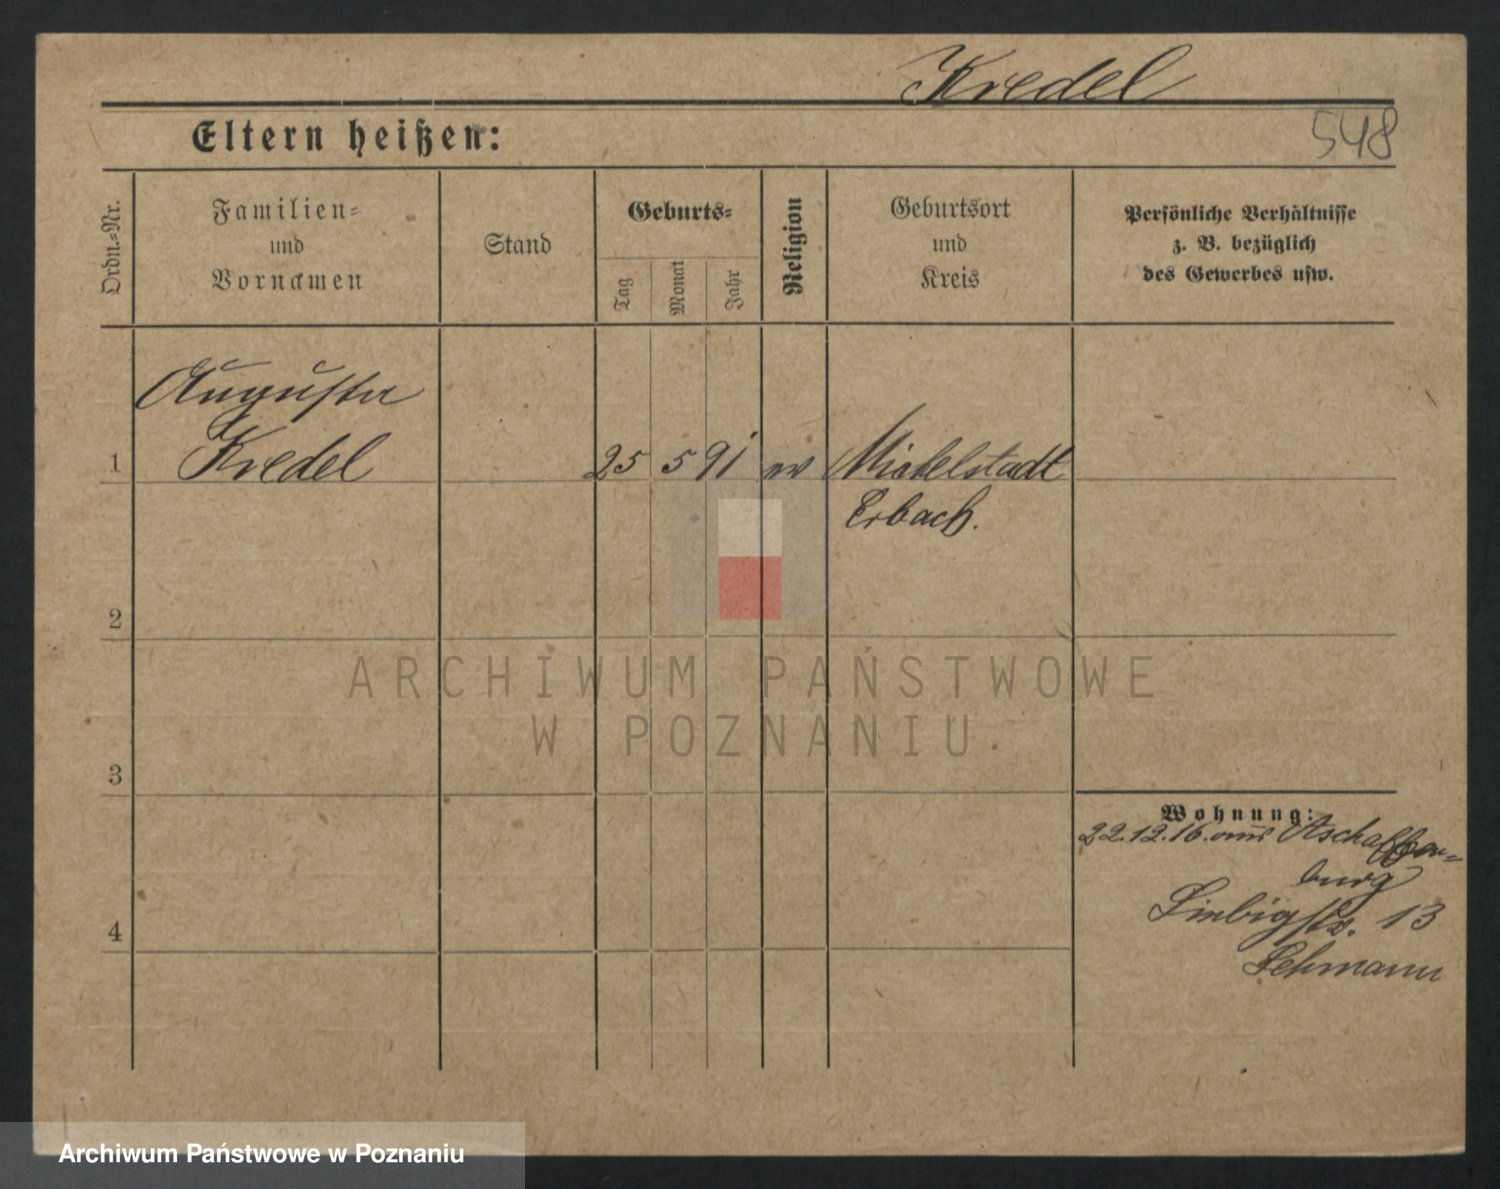 Kredel
Eltern heißen:
548
Ordn.=Nr.
Familien=
und
Vornamen
Stand
Geburts=
Tag
Monat
Jahr
Religion
Geburtsort
und
Kreis
Persönliche Verhältnisse
z. B. bezüglich
des Gewerbes usw.
Augusta
1 Kredel 25 5 91 ev Michelstadt
Erbach.
2
ARCHIWUM PAŃSTWOWE
W POZNANIU
3
Wohnung:
22.12.16. aus Aschaffen=
burg
4 Liebigstr. 13
Lehmann
Archiwum Państwowe w Poznaniu